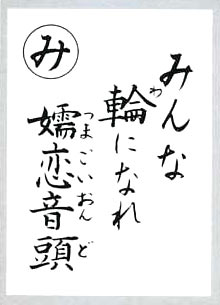 み
みんな
輪になれ
わ
嬬恋音頭
つまごいおんど